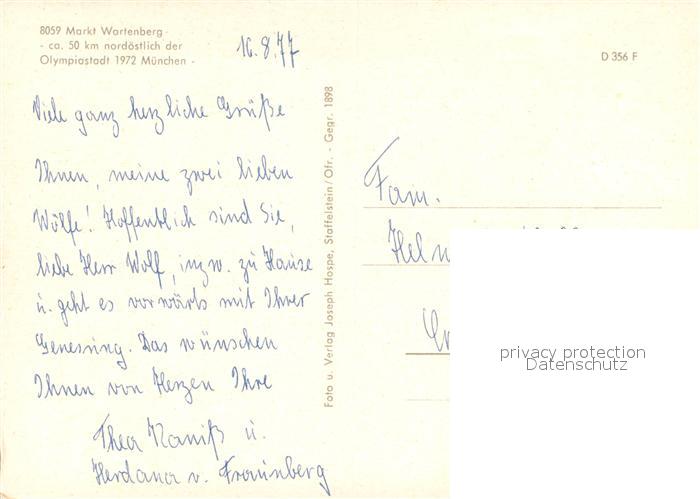 8059 Markt Wartenberg -
- ca. 50 km nordöstlich der
Olympiastadt 1972 München -
16.8.77
D 356 F
Viele ganz herzliche Grüße
Ihnen, meine zwei lieben
Wölfe! Hoffentlich sind Sie,
liebe Herr Wolf, inzw. zu Hause
u. geht es vorwärts mit Ihrer
Genesung. Das wünschen
Ihnen von Herzen Ihre
Thea u.
v. Fraunberg
Foto u. Verlag Joseph Hospe, Staffelstein/Ofr. - Gegr. 1898
Fam.
privacy protection
Datenschutz